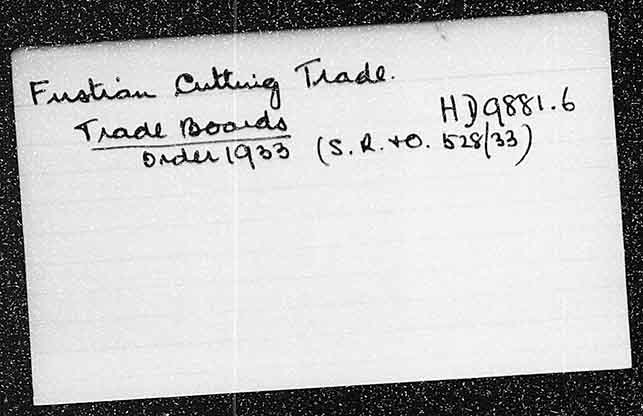 Fustian Cutting Trade.
Trade Boards
HD9881.6
Order 1933 (S. R. +O. 528/33)